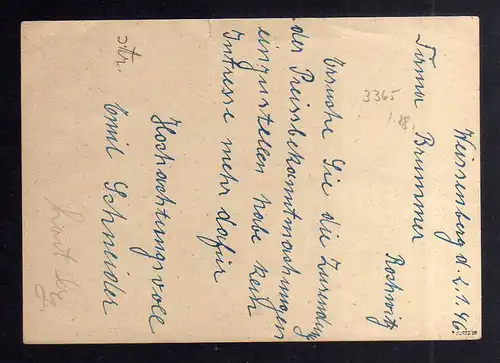 Weissenberg d. 2.1.46
Firma Brummer
Rochwitz
3365
1.8.
Ersuche Sie die Zusendung
der Preissbekanntmachungen
einzustellen habe kein
Intresse mehr dafür
Hochachtungsvoll
Emil Schneider
str.